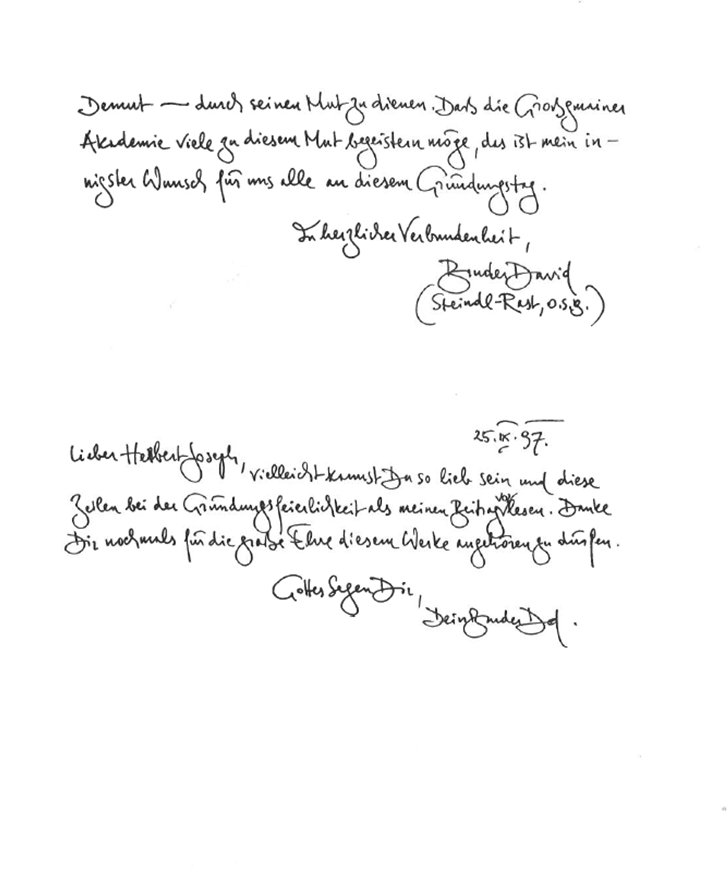 Demut — durch seinen Mut zu dienen. Daß die Großgmainer
Akademie viele zu diesem Mut begeistern möge, das ist mein in-
nigster Wunsch für uns alle an diesem Gründungstag.
In herzlicher Verbundenheit,
Bruder David
(Steindl-Rast, O.S.B.)
25.IX.97.
Lieber Herbert Joseph,
vielleicht kannst Du so lieb sein und diese
Zeilen bei der Gründungsfeierlichkeit als meinen Beitrag vorlesen. Danke
Dir nochmals für die große Ehre diesem Werke angehören zu dürfen.
Gottes Segen Dir,
Dein Bruder Dd.